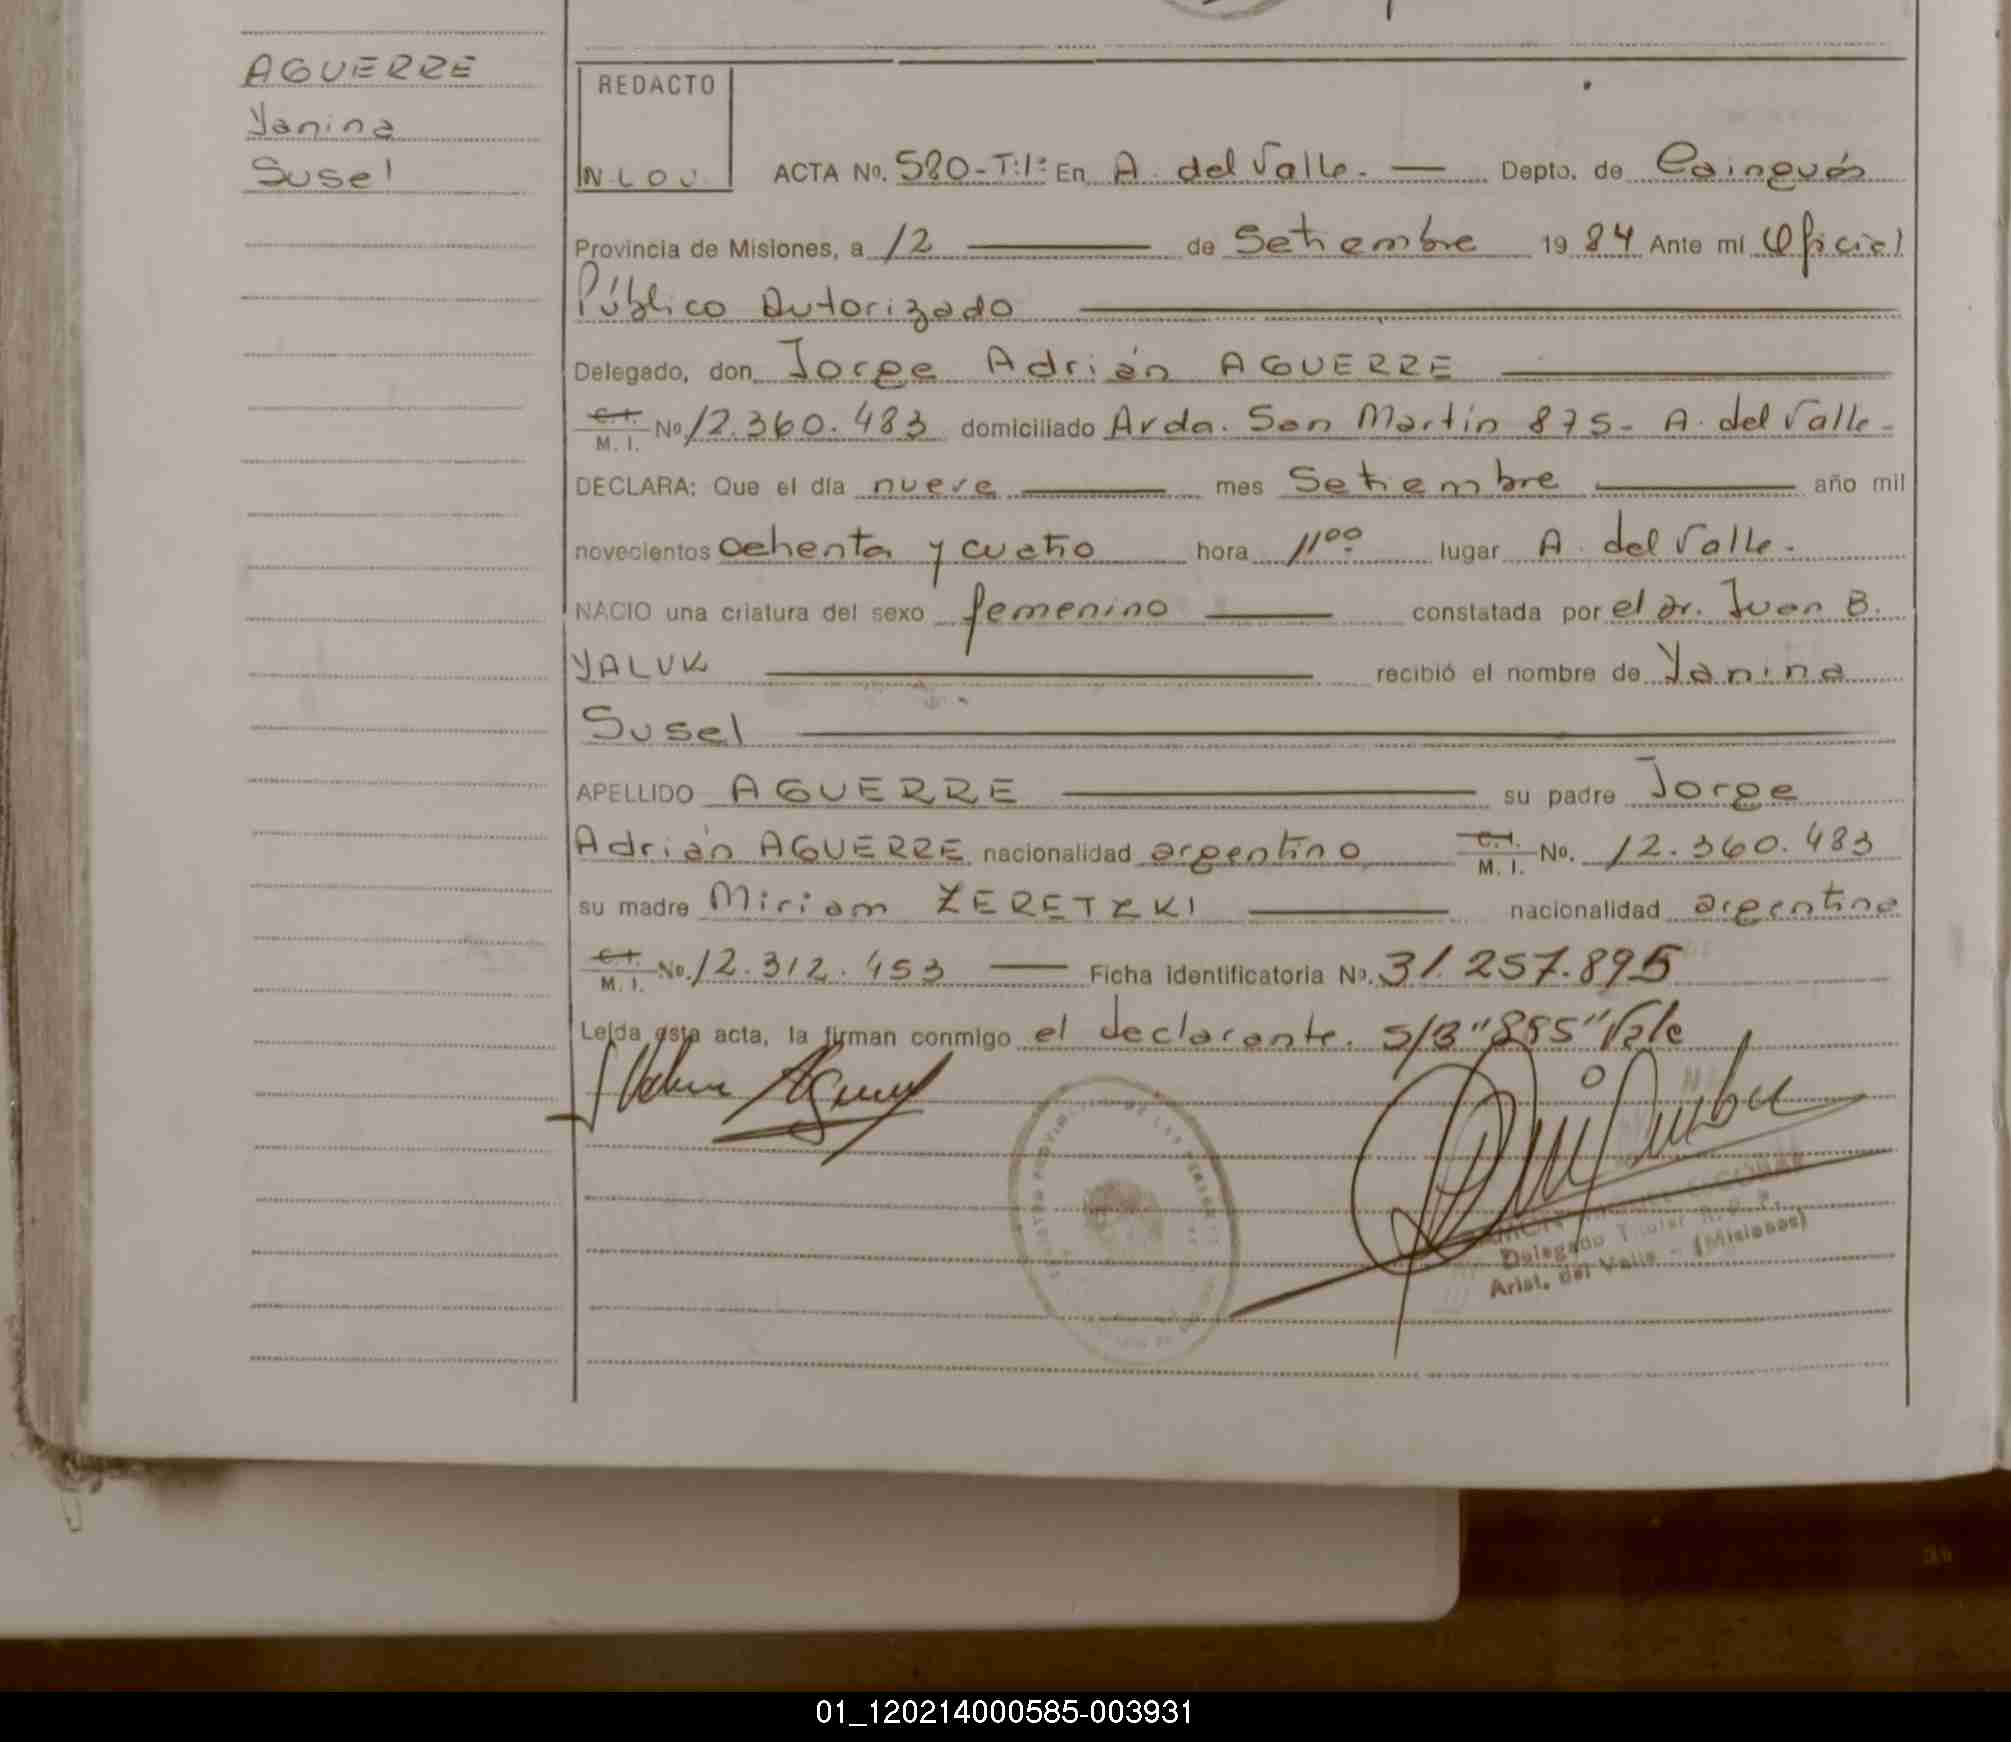 AGUERRE
Yanina
Susel
REDACTO
N.L.O.J.
ACTA No. 580-T:1º En A. del Valle. — Depto. de Cainguás
Provincia de Misiones, a 12 — de Setiembre 1984 Ante mí Oficial
Público Autorizado
Delegado, don Jorge Adrián AGUERRE
C.I. M. I. No. 12.360.483 domiciliado Avda. San Martín 875- A. del Valle-
DECLARA: Que el día nueve — mes Setiembre — año mil
novecientos ochenta y cuatro hora 11ºº lugar A. del Valle.
NACIO una criatura del sexo femenino — constatada por el dr. Juan B.
YALUK — recibió el nombre de Yanina
Susel
APELLIDO AGUERRE — su padre Jorge
Adrián AGUERRE nacionalidad argentino C.I. M. I. No. 12.360.483
su madre Miriam ZERETZKI — nacionalidad argentina
C.I. M. I. No. 12.312.453 — Ficha identificatoria No. 31.257.895
Leída esta acta, la firman conmigo el declarante. S/B "895" Vale
Delegado Titular R. P.
Arist. del Valle - (Misiones)
01_120214000585-003931